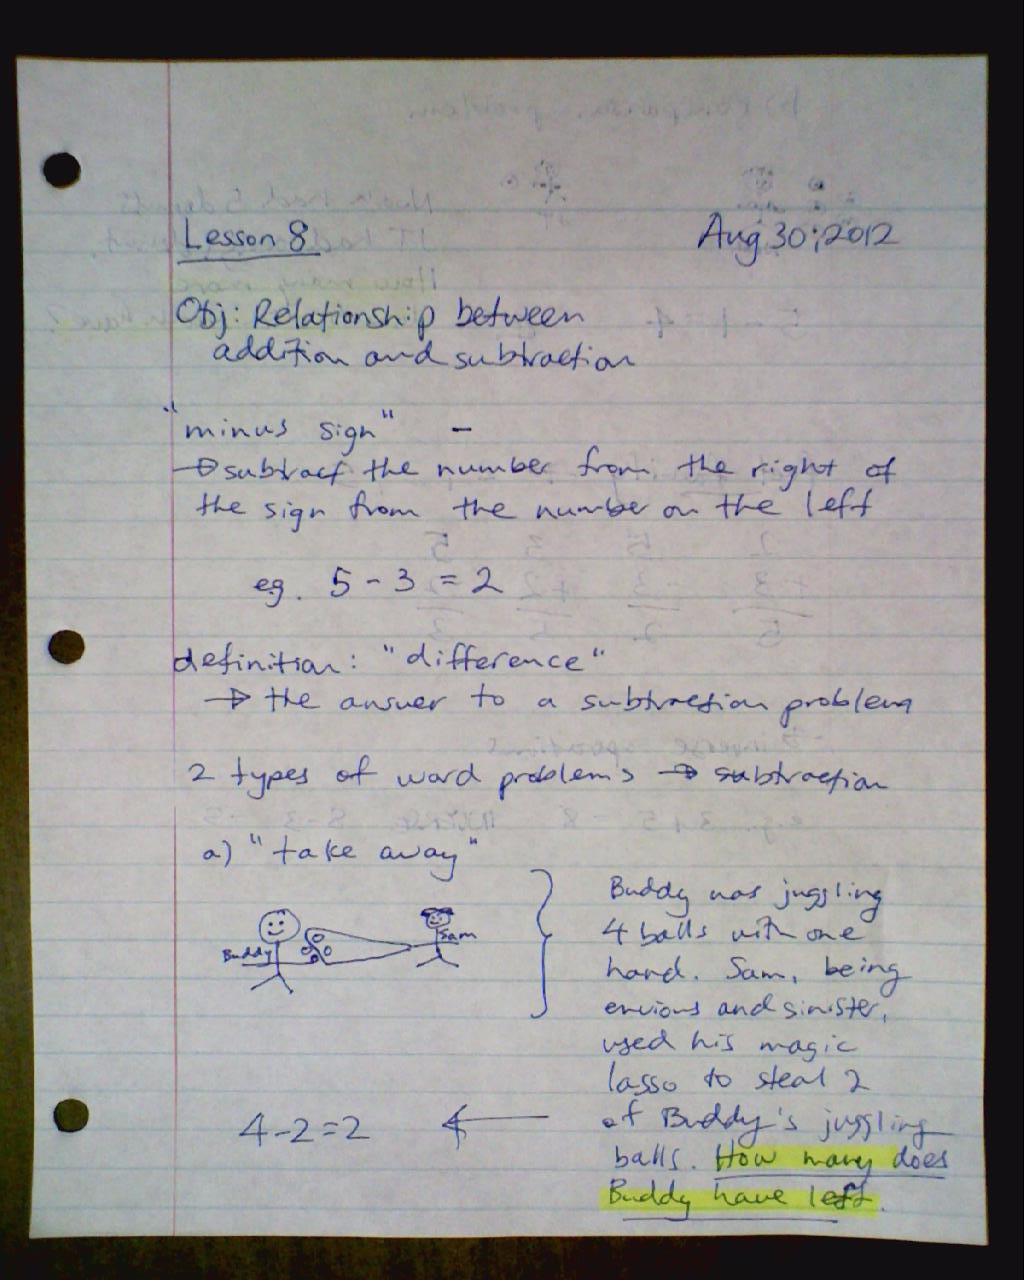 Lesson 8 Aug 30, 2012
Obj: Relationship between
addition and subtraction
"minus sign" -
→ subtract the number from the right of
the sign from the number on the left
eg. 5 - 3 = 2
definition: "difference"
→ the answer to a subtraction problem
2 types of word problems → subtraction
a) "take away"
Buddy
Sam
Buddy was juggling
4 balls with one
hand. Sam, being
envious and sinister,
used his magic
lasso to steal 2
of Buddy's juggling
balls. How many does
Buddy have left.
4-2=2 ←